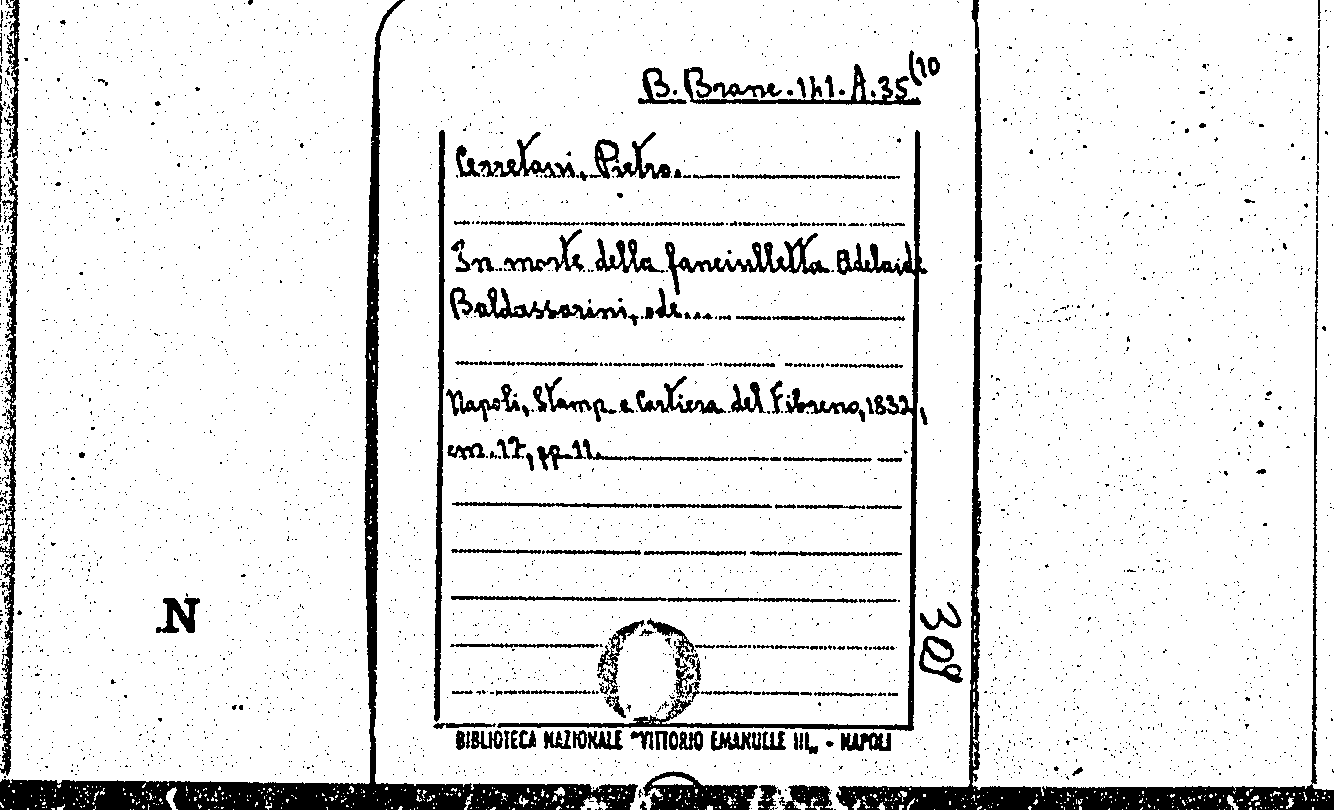 B. Branc. 141. A. 35(10
Cerretani, Pietro.
In morte della fanciulletta Adelaide
Baldassarini, ode...
Napoli, Stamp. e Cartiera del Fibreno, 1832,
cm. 17, pp. 11.
N
309
BIBLIOTECA NAZIONALE "VITTORIO EMANUELE III„ - NAPOLI